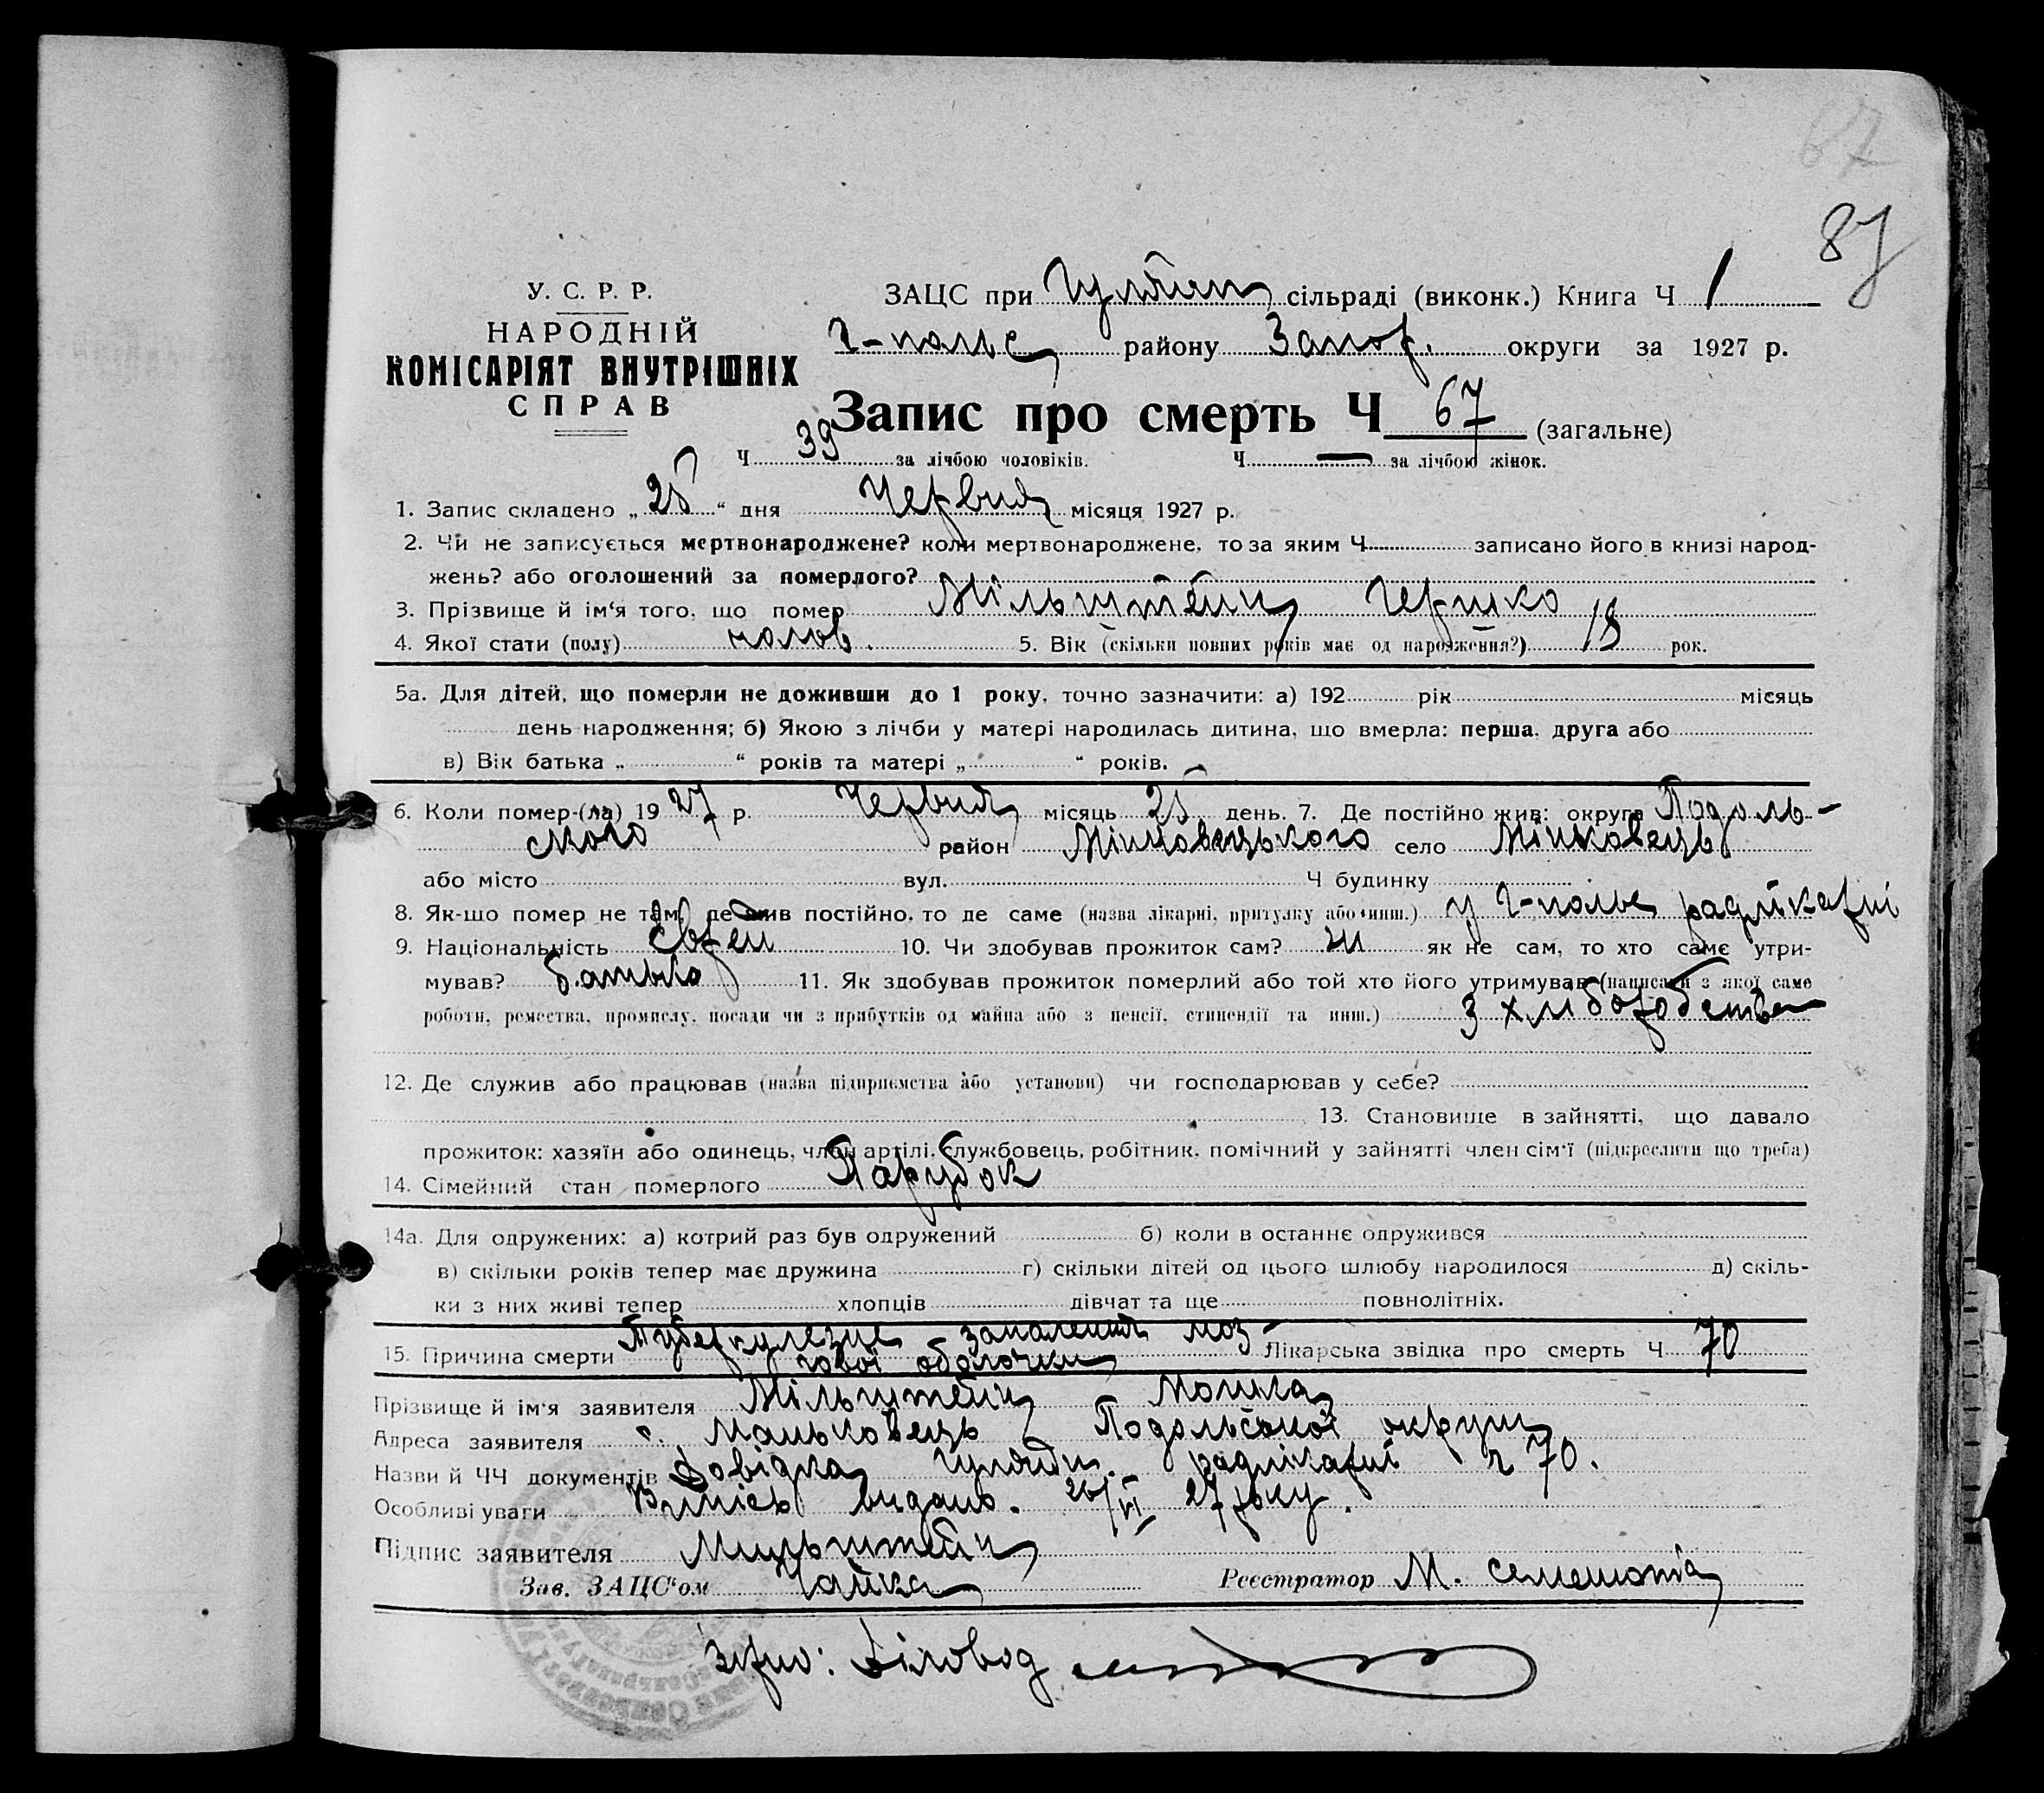 67
87
У. С. Р. Р.
НАРОДНІЙ
КОМІСАРІЯТ ВНУТРІШНІХ
СПРАВ
ЗАЦС при Гуляйп сільраді (виконк.) Книга Ч 1
Г-польс району Запор. округи за 1927 р.
Запис про смерть Ч 67 (загальне)
Ч 39 за лічбою чоловіків. Ч — за лічбою жінок.
1. Запис складено „ 25 “ дня Червня місяця 1927 р.
2. Чи не записується мертвонароджене? коли мертвонароджене, то за яким Ч записано його в книзі народ-
жень? або оголошений за померлого?
3. Прізвище й ім‘я того, що помер Мільштейн Гершко
4. Якої стати (полу) чолов. 5. Вік (скільки повних років має од народження?) 18 рок.
5а. Для дітей, що померли не доживши до 1 року, точно зазначити: а) 192 рік місяць
день народження; б) Якою з лічби у матері народилась дитина, що вмерла: перша, друга або
в) Вік батька „ “ років та матері „ “ років.
6. Коли помер-(ла) 19 27 р. Червня місяць 25 день. 7. Де постійно жив: округа Подоль-
ського район Міньковецького село Міньковець
або місто вул. Ч будинку
8. Як-що помер не там, де жив постійно, то де саме (назва лікарні, притулку або инш.) у Г-польс радлікарні
9. Національність Єврей 10. Чи здобував прожиток сам? ні як не сам, то хто саме утри-
мував? батько 11. Як здобував прожиток померлий або той хто його утримував (написати з якої саме
роботи, ремества, промислу, посади чи з прибутків од майна або з пенсії, стипендії та инш.) з хліборобства
12. Де служив або працював (назва підприємства або установи) чи господарював у себе?
13. Становище в зайнятті, що давало
прожиток: хазяїн або одинець, член артілі, службовець, робітник, помічний у зайнятті член сім‘ї (підкреслити що треба)
14. Сімейний стан померлого Парубок
14а. Для одружених: а) котрий раз був одружений б) коли в останнє одружився
в) скільки років тепер має дружина г) скільки дітей од цього шлюбу народилося д) скіль-
ки з них живі тепер хлопців дівчат та ще повнолітніх.
Туберкулезне запалення моз-
15. Причина смерти гової оболочки Лікарська звідка про смерть Ч 70
Прізвище й ім‘я заявителя Мільштейн Мошка
Адреса заявителя с. Маньковець Подольської округи
Назви й ЧЧ документів Довідка Гуляйп. радлікарні ч 70.
Особливі уваги Випісь видано. 26/VI 27 року.
Підпис заявителя Мильштейн
Зав. ЗАЦС‘ом Чайка Реєстратор М.
Діловод